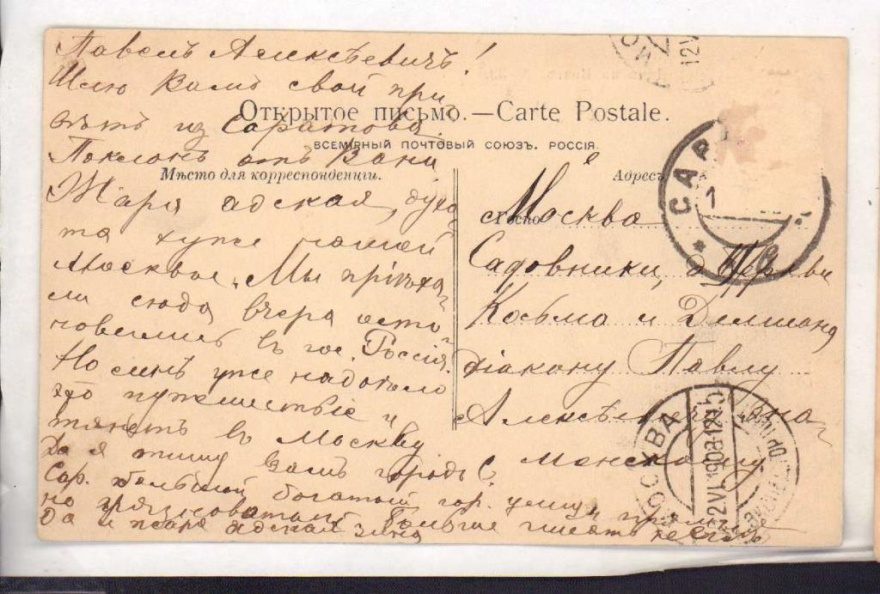 Павелъ Алексѣевичъ!
Шлю Вамъ свой при-
вѣтъ из Саратова.
Поклонъ отъ Вани
Открытое письмо.—Carte Postale.
ВСЕМІРНЫЙ ПОЧТОВЫЙ СОЮЗЪ. РОССІЯ.
Мѣсто для корреспонденціи.
Жара адская, духо-
та хуже нашей
Москвы. Мы пріѣха-
ли сюда вчера оста-
новились в гос. Россія.
Но сынъ уже надоѣло
это путешествіе и
тянетъ в Москву
Да я пишу Вамъ городъ С.
Сар. большой богатый гор. улицы
но грязноватый
Да и жара адская
Адресъ
Москва
Садовники, д Церкви
Козьма и Демиана
діакону Павлу
Алексѣевичу
Манскому
САР
1
МОСКВА
12.VI.1908